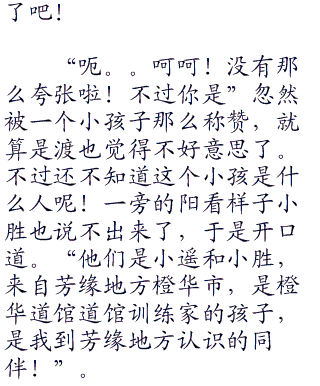 了吧！
“呃。。呵呵！没有那
么夸张啦！不过你是”忽然
被一个小孩子那么称赞，就
算是渡也觉得不好意思了。
不过还不知道这个小孩是什
么人呢！一旁的阳看样子小
胜也说不出来了，于是开口
道。“他们是小遥和小胜，
来自芳缘地方橙华市，是橙
华道馆道馆训练家的孩子，
是我到芳缘地方认识的同
伴！”。